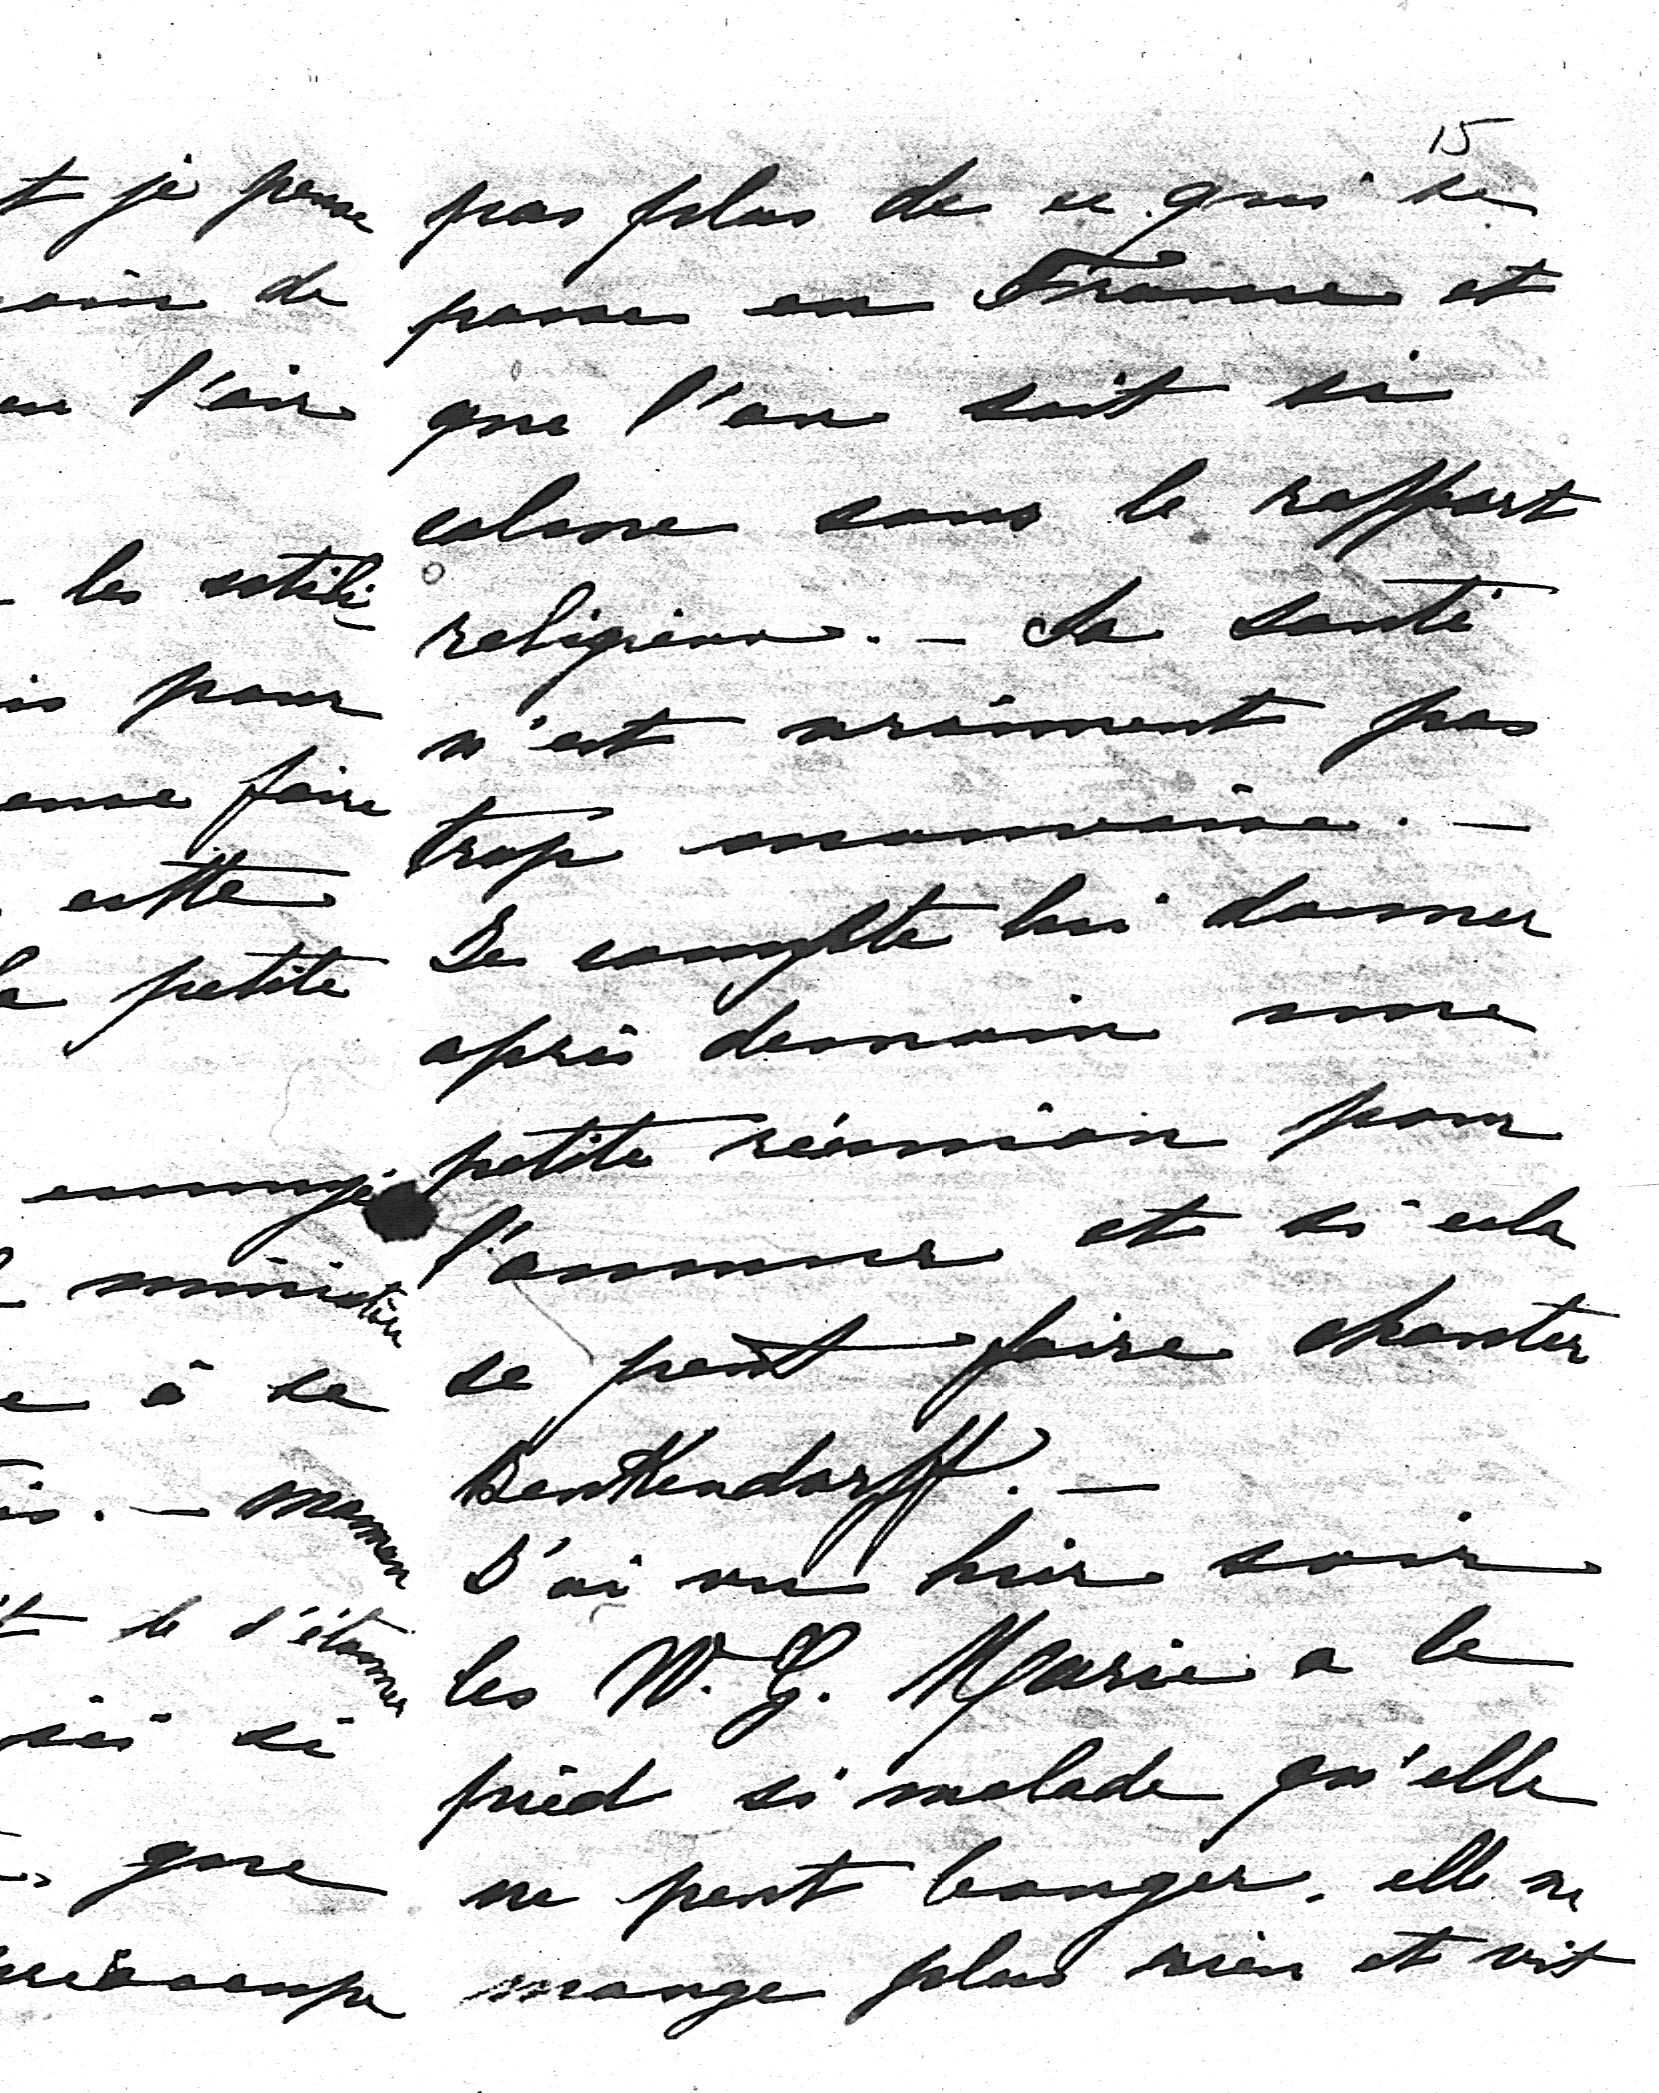 t je pense
de
l'air
les
pour
faire
cette
petite
ennuyé
ministère
à se
maman
t de s'étonner
si
que
préoccupe
15
pas plus de ce qui se
passe en France et
que l'on soit si
calme sous le rapport
religieux. — Sa santé
n'est vraiment pas
trop mauvaise. —
Je compte lui donner
après demain une
petite réunion pour
l'amuser et si cela
se peut faire chanter
Benkendorff. —
J'ai vu hier soir
les W. G. Marie a le
pied si malade qu'elle
ne peut bouger. elle ne
mange plus rien et vit